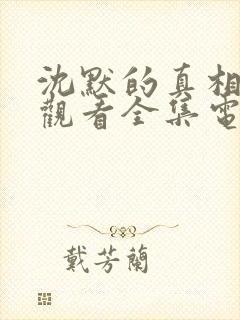 沈默的真相
觀看全集電
戴芳蘭